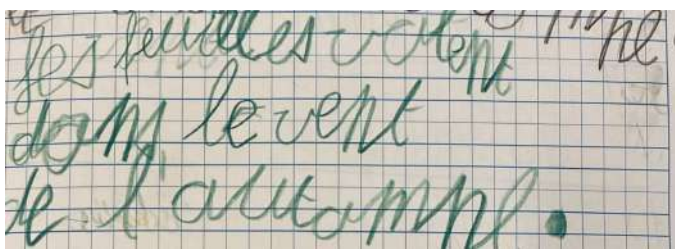 les feuilles volent
dans le vent
de l'automne.